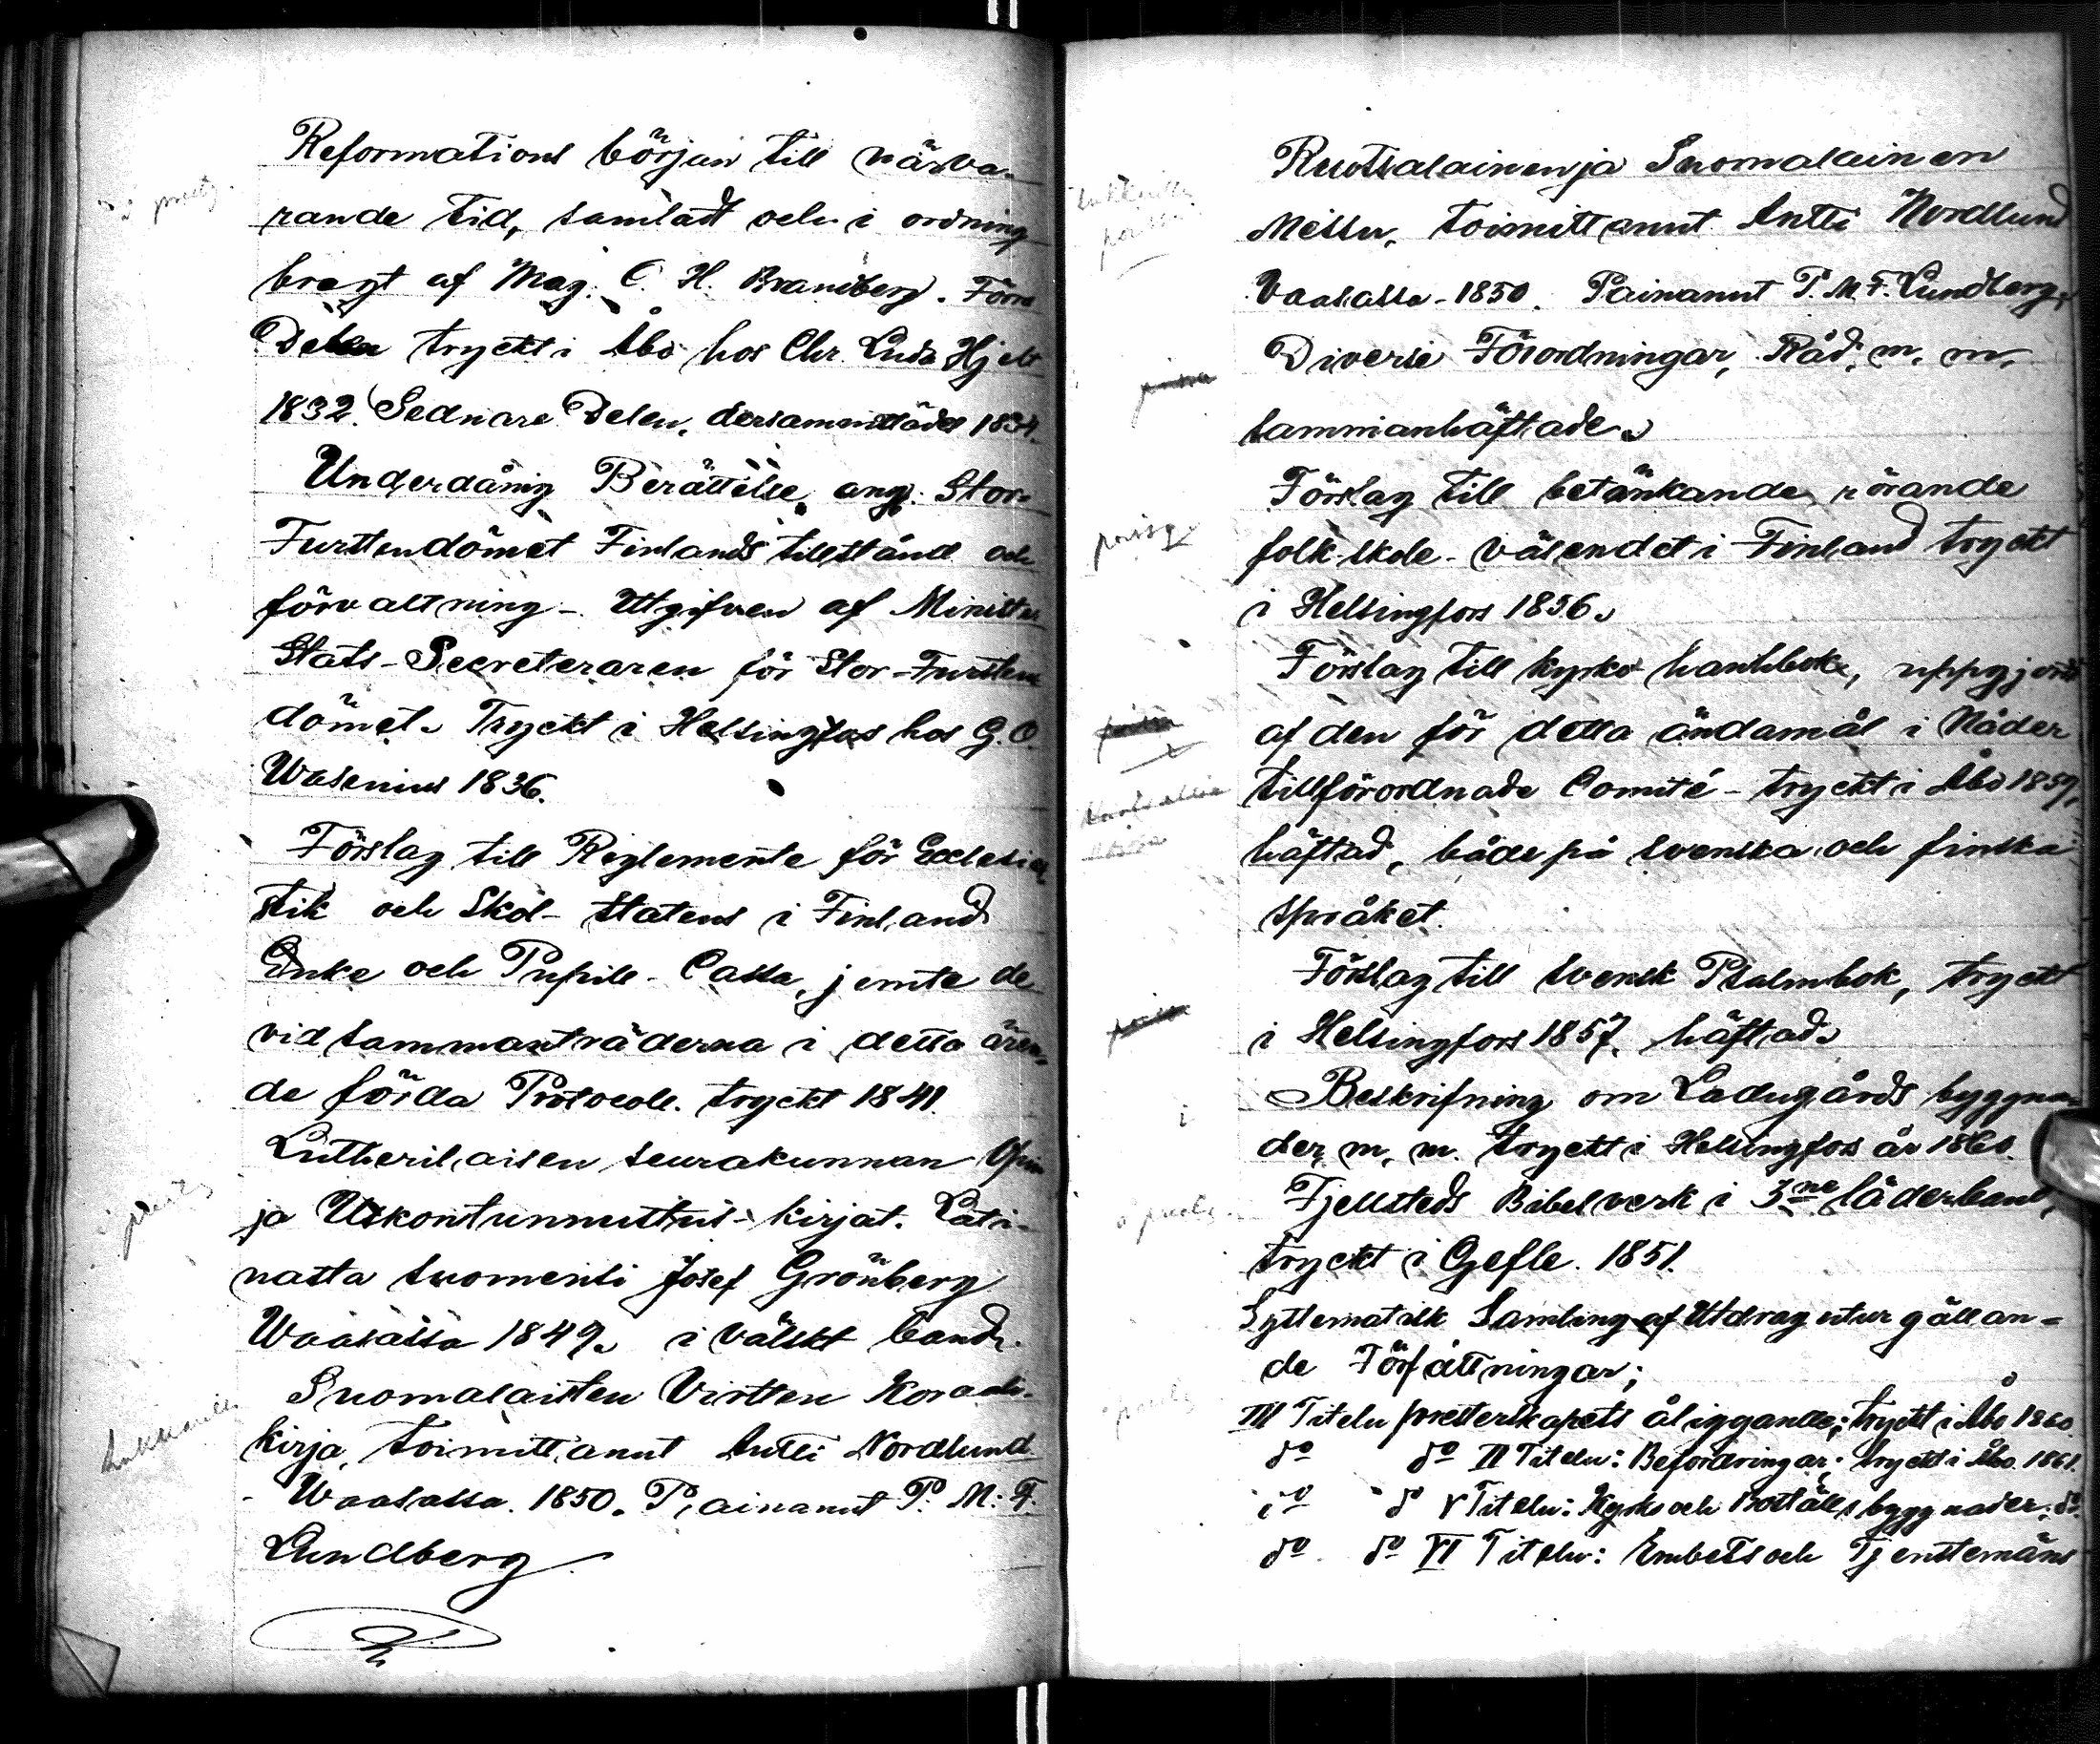 Reformations början till närva-
rande tid, samladt och i ordning
bragt af Mag. C. H. Brandberg. Förra
Delen tryckt i Åbo hos Chr. Ludv Hjelt
1832. Sednare Delen, dersammastädes 1834.
Underdånig Berättelse, ang. Stor-
Furstendömet Finlands tillstånd och
förvaltning - Utgifven af Minister
Stats-Secreteraren för Stor-Fursten
dömet. Tryckt i Helsingfors hos G. O.
Wasenius 1836.
Förslag till Reglemente för Ecclesia-
stik och Skol-Statens i Finland
Enke och Pupill-Cassa, jemte de
vid sammanträderna i detta ären-
de förda Protocoll. tryckt 1841.
Lutherilaisen seurakunnan Opin
ja Uskontunnustus-kirjat. Lati-
nasta suomensi Josef Grönberg
Waasassa 1849. i välskt band.
Suomalaisten Virtten Koraali-
kirja, toimittanut Antti Nordlund
- Waasassa. 1850. Painanut P. M. F.
Lundberg
Ruotsalainen ja Suomalainen
Messu, toimittanut Antti Nordlund
Vaasassa - 1850. Painanut P. M. F. Lundberg.
Diverse Förordningar, Råd, m. m.
sammanhäftade.
Förslag till betänkande rörande
folkskole-väsendet i Finland tryckt
i Helsingfors 1856.
Förslag till kyrko handbok, uppgjord
af den för detta ändamål i Nåder
tillförordnade Comité - tryckt i Åbo 1859,
häftad, både på svenska och finska
språket.
Förslag till svensk Psalmbok, tryckt
i Helsingfors 1857. häftad.
Beskrifning om Ladugårds byggna
der m. m. tryckt i Helsingfors år 1860
Fjellsteds Bibelverk i 3ne läderband,
tryckt i Gefle. 1851.
Systematisk Samling af Utdrag utur gällan-
de Författningar;
III Titeln presterskapets åligganden; tryckt i Åbo 1860.
do do II Titeln: Befordringar; tryckt i Åbo 1861.
do do V Titeln: Kyrko och Boställs byggnader. do
do do VI Titeln: Embets och Tjenstemäns